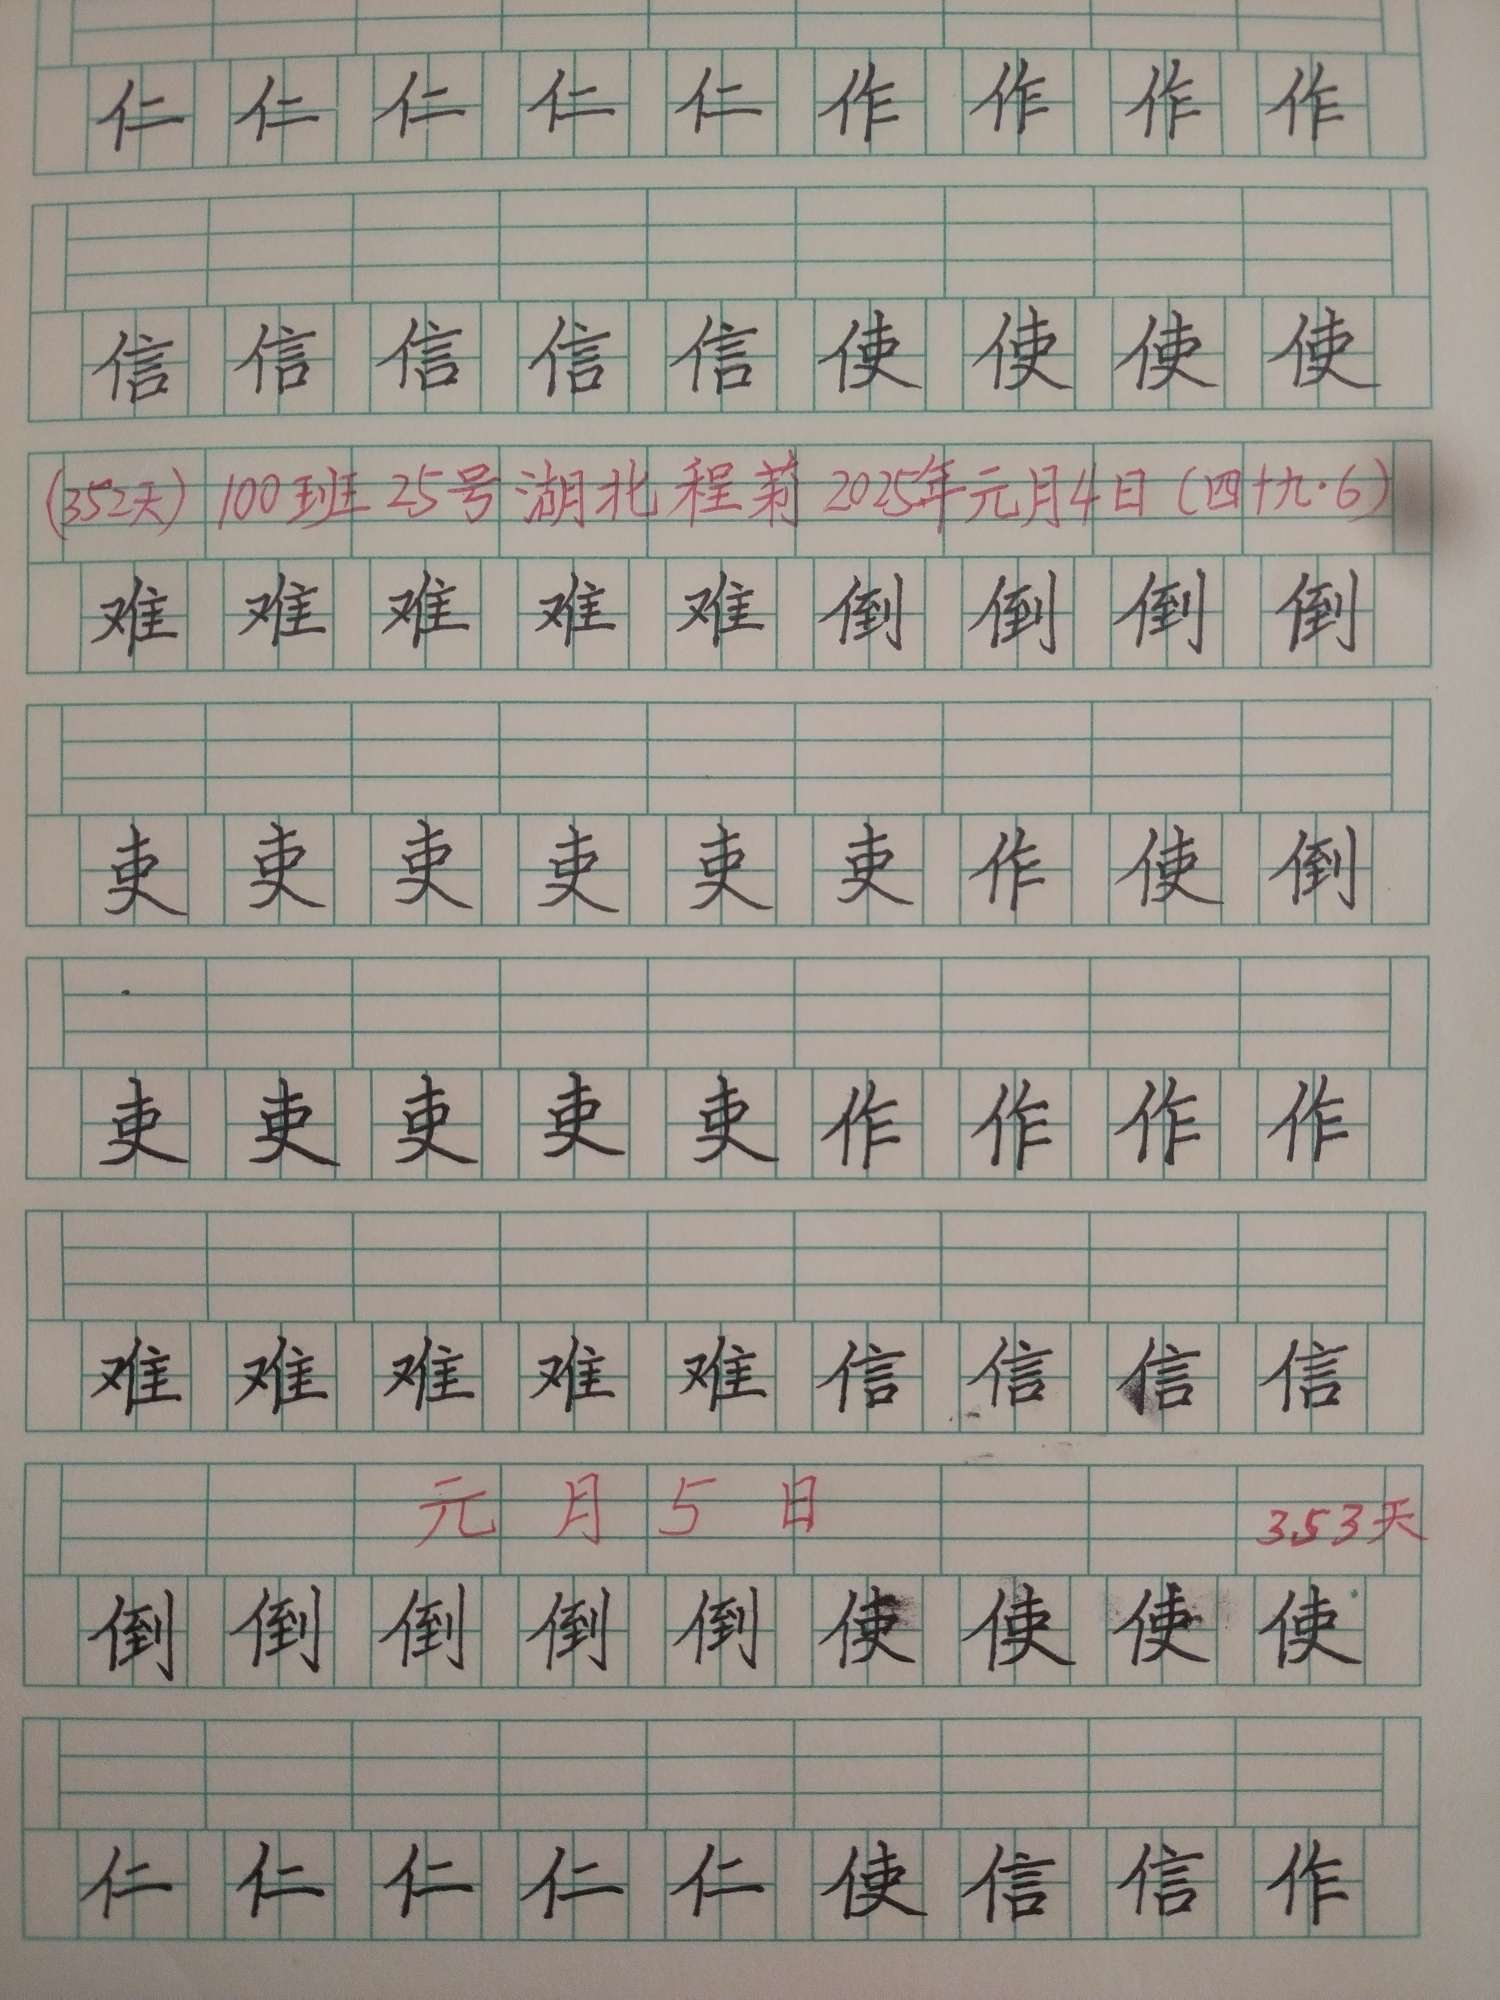 仁仁仁仁仁作作作作
信信信信信使使使使
(352天) 100班 25号 湖北 程莉 2025年元月4日 (四十九·6)
难难难难难倒倒倒倒
吏吏吏吏吏吏作使倒
吏吏吏吏吏作作作作
难难难难难信信信信
元月5日 353天
倒倒倒倒倒使使使使
仁仁仁仁仁使信信作